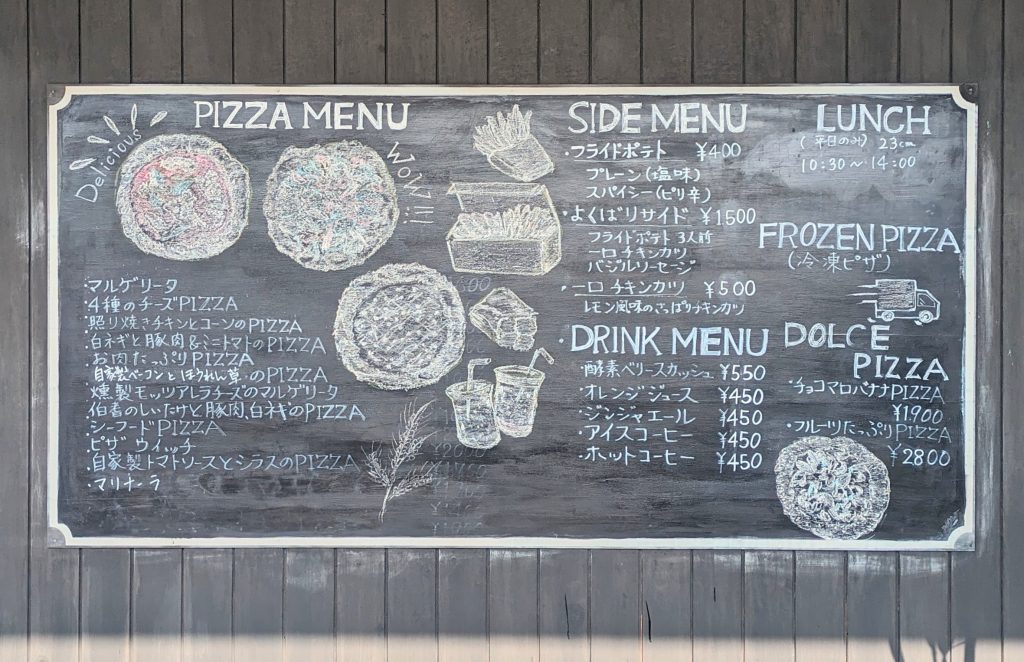 Delicious
PIZZA MENU
WOW!!!
・マルゲリータ
・4種のチーズPIZZA
・照り焼きチキンとコーンのPIZZA
・白ネギと豚肉&ミニトマトのPIZZA
・お肉たっぷりPIZZA
・自家製ベーコンとほうれん草のPIZZA
・燻製モッツアレラチーズのマルゲリータ
・伯耆のしいたけと豚肉、白ネギのPIZZA
・シーフードPIZZA
・ピザウイッチ
・自家製トマトソースとシラスのPIZZA
・マリナーラ
SIDE MENU
・フライドポテト ¥400
プレーン(塩味)
スパイシー(ピリ辛)
・よくばりサイド ¥1,500
フライドポテト 3人前
一口チキンカツ
バジルソーセージ
・一口チキンカツ ¥500
レモン風味のさっぱりチキンカツ
DRINK MENU
・酵素ベリースカッシュ ¥550
・オレンジジュース ¥450
・ジンジャエール ¥450
・アイスコーヒー ¥450
・ホットコーヒー ¥450
LUNCH
(平日のみ) 23cm
10:30~14:00
FROZEN PIZZA
(冷凍ピザ)
DOLCE
PIZZA
・チョコマロバナナPIZZA
¥1900
・フルーツたっぷりPIZZA
¥2800